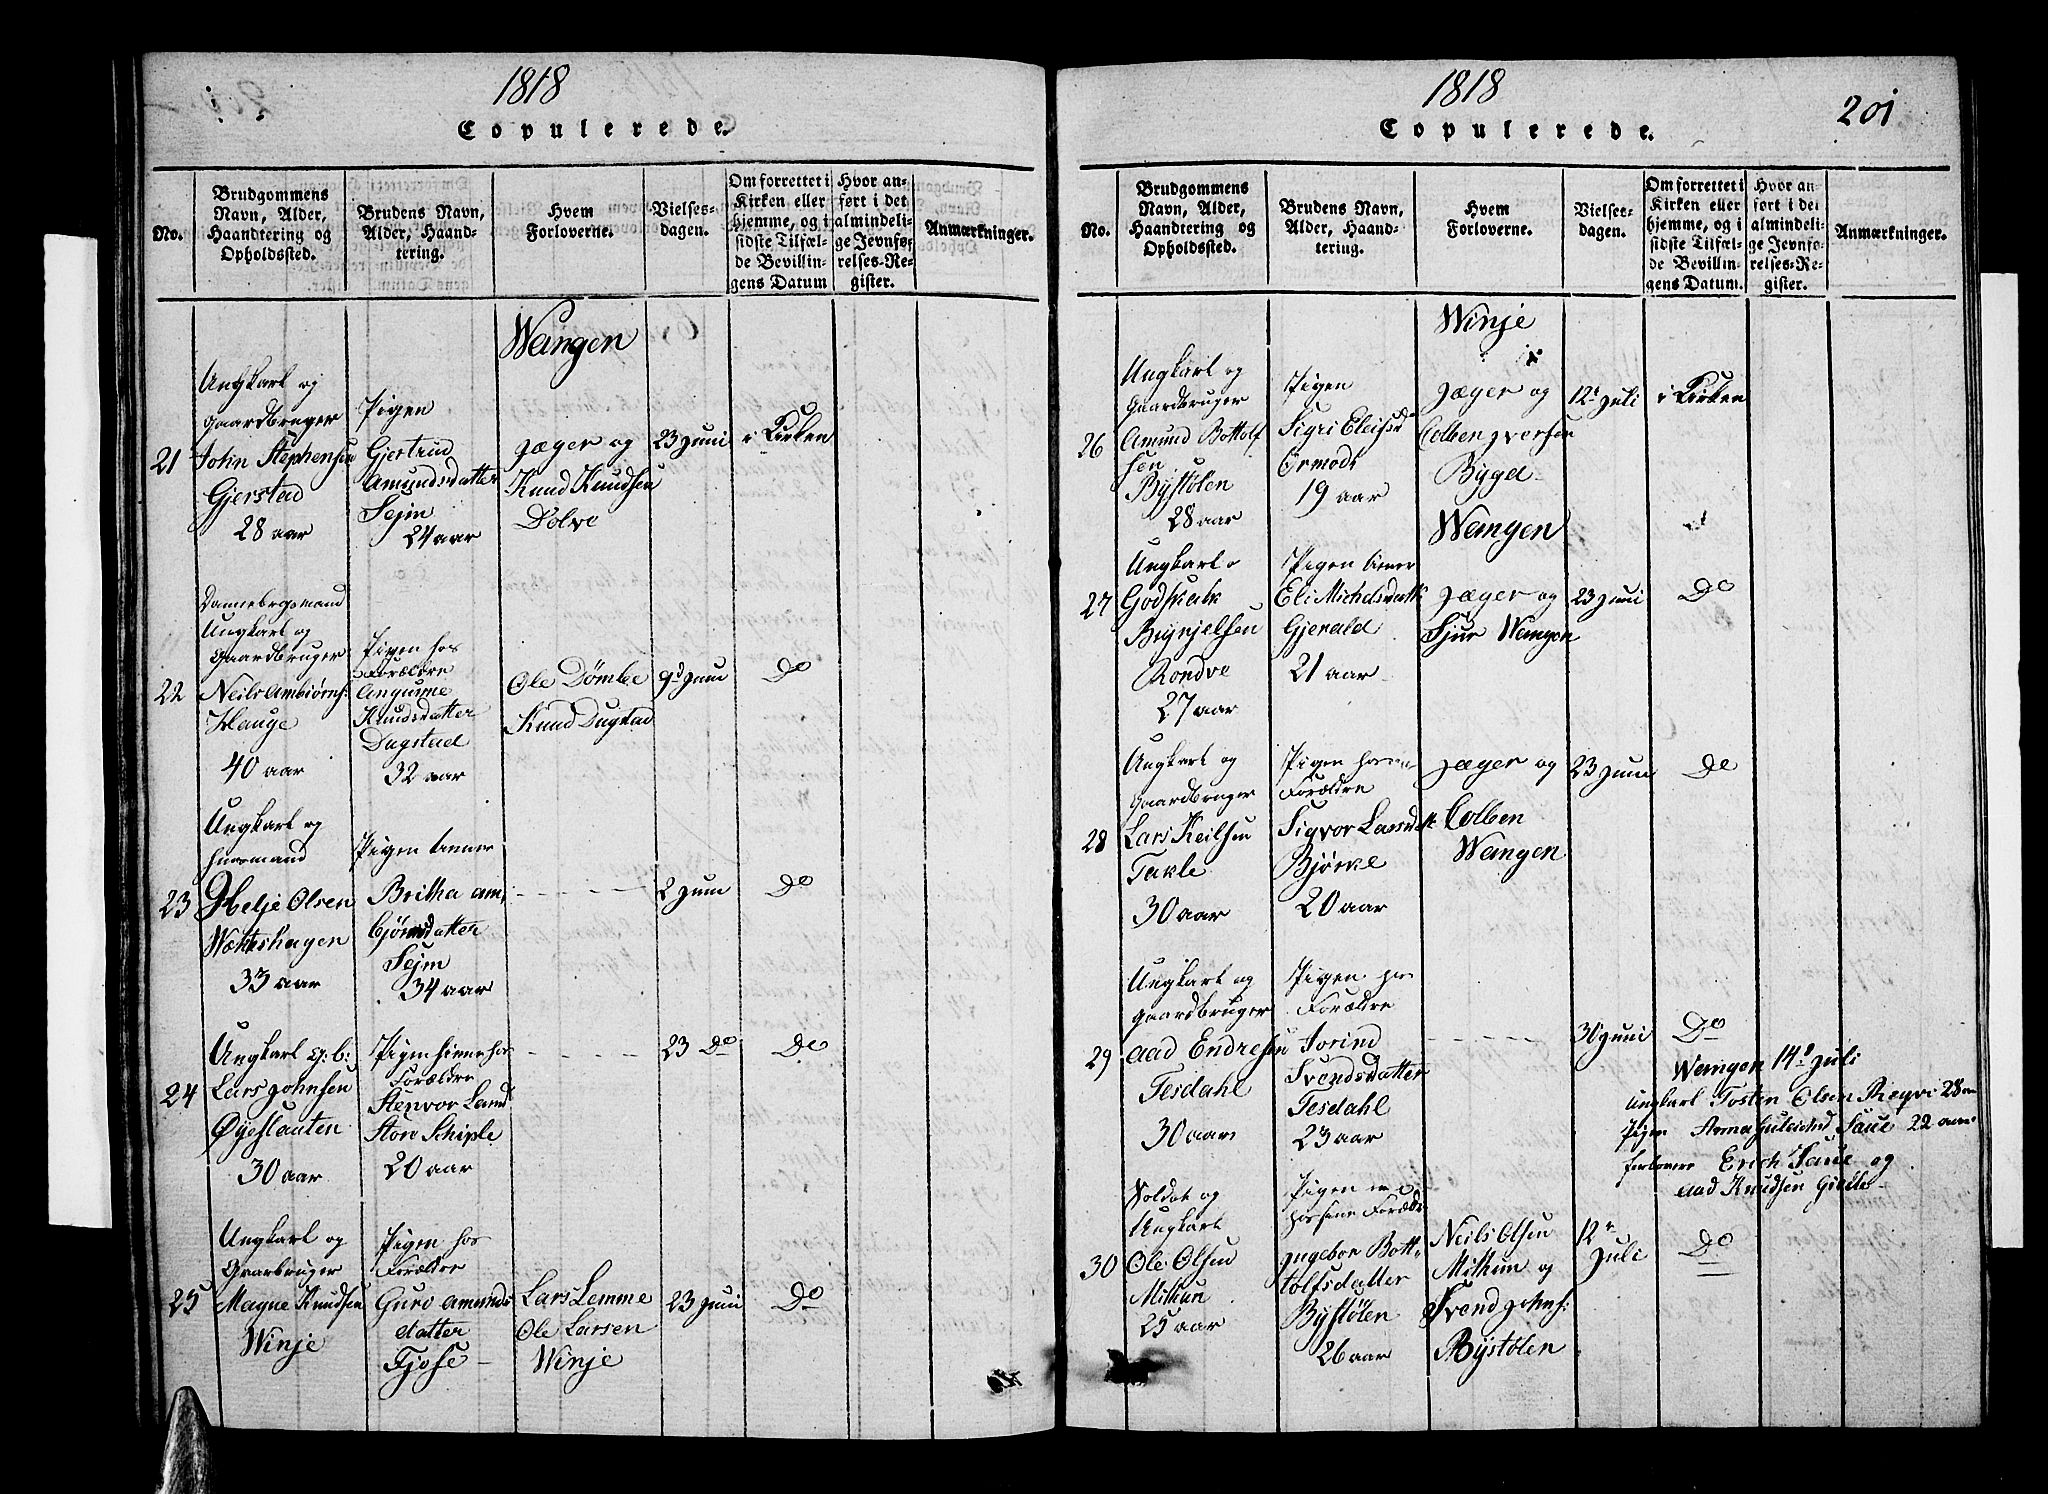 1818
Copulerede.
No.
Brudgommens
Navn, Alder,
Haandtering og
Opholdssted.
Brudens Navn,
Alder, Haand-
tering.
Hvem
Forloverne.
Vielses-
dagen.
Om forrettet i
Kirken eller
hjemme, og i
sidste Tilfæl-
de Bevillin-
gens Datum
Hvor an-
ført i det
almindeli-
ge Jevnfø-
relses-Re-
gister.
Anmærkninger.
Wangen
21
Ungkarl og
gaardbruger
John Stephensen
Gjerstad
28 aar
Pigen
Gjertrud
Amundsdatter
Sejm
24 aar
Jæger og
Knud Knudsen
Dolve
23 Juni
i Kirken
22
Dannebrogsmand
Ungkarl og
Gaardbruger
Neils Ambiørns:
Hauge
40 aar
Pigen hos
Forældre
Angunne
Knudsdatter
Dugstad
32 aar
Ole Dømbe
Knud Dugstad
9d Juni
Do
23
Ungkarl og
huusmand
Helje Olsen
33 aar
Pigen tiener
Britha am,
bjørnsdatter
Sejm
34 aar
2 Juni
Do
24
Ungkarl g: b:
Lars Johnsen
Øyeflaaten
30 aar
Pigen hos
Forældre
Stenvor Larsd
Store Schiple
20 aar
23 Do
Do
25
Ungkarl og
Gaarbruger
Magne Knudsen
Winje
Pigen hos
Forældre
Guro Amunds
datter
Fjose
Lars Lemme
Ole Larsen
Winje
23 Juni
Do
1818
201
Copulerede.
No.
Brudgommens
Navn, Alder,
Haandtering og
Opholdssted.
Brudens Navn,
Alder, Haand-
tering.
Hvem
Forloverne.
Vielses-
dagen.
Om forrettet i
Kirken eller
hjemme, og i
sidste Tilfæl-
de Bevillin-
gens Datum.
Hvor an-
ført i det
almindeli-
ge Jevnfø-
relses-Re-
gister.
Anmærkninger.
Winje
26
Ungkarl og
Gaardbruger
Amund Bottolf
sen
Bystølen
28 aar
Pigen
Sigri Eleifsd
Ormodt
19 aar
Jæger og
Colben Iversen
Bygd
12te Juli
i Kirken
Wangen
27
Ungkarl
Godskalk
Brynjelsen
Rondve
27 aar
Pigen tiener
Eli Michelsdattr
Gjerald
21 aar
Jæger og
Sjur Wangen
23 Juni
Do
28
Ungkarl og
Gaardbruger
Lars Keilsen
Takle
30 aar
Pigen hos
Forældre
Sigvor Larsdtr
Bjørke
20 aar
Jæger og
Colben
Wangen
23 Juni
Do
29
Ungkarl og
gaardbruger
Aad Endresen
Tesdahl
30 aar
Pigen hos
Forældre
Jorind
Svendsdatter
Tesdahl
23 aar
30 Juni
Do
Wangen 14d Juli
Ungkarl Tosten Olsen Reqvi 28 aar
Pigen Anna Saue 22 aar
forlovere Erich Saue og
Aad Knudsen
30
Soldat og
Ungkarl
Ole Olsen
Mithun
25 aar
Pigen
hos sine Forældr
Ingebor Bott-
tolfsdatter
Bystølen
26 aar
Neils Olsen
Mithun og
Svend Johns:
Bystølen
12te
Juli
Do